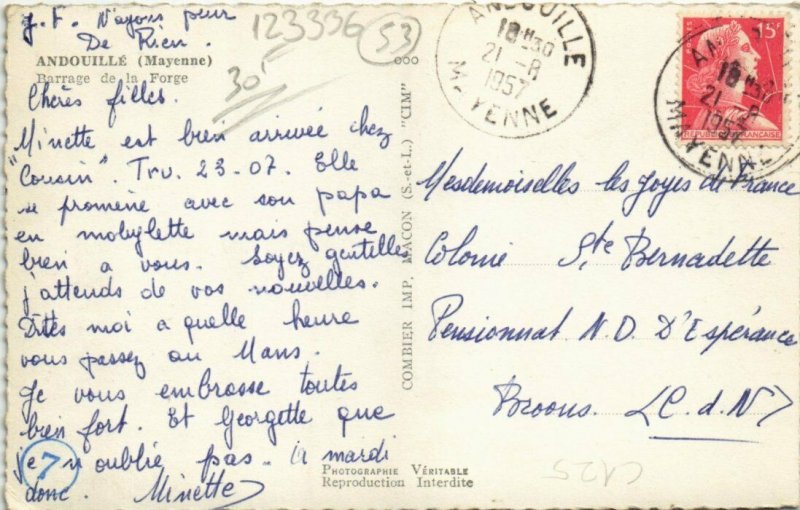 J.F. N'ayons peur
De Rien.
ANDOUILLÉ (Mayenne)
Barrage de la Forge
123336
53
30
Chères filles.
Minette est bien arrivée chez
"Cousin". Tru. 23-07. Elle
se promène avec son papa
en mobylette mais pense
bien a vous. Soyez gentilles
j'attends de vos nouvelles.
Dites moi a quelle heure
vous passez au Mans.
Je vous embrasse toutes
bien fort. Et Georgette que
je n'oublie pas. a mardi
donc. Minette
7
PHOTOGRAPHIE VÉRITABLE
Reproduction Interdite
COMBIER IMP. MACON (S.-et-L.) "CIM"
ANDOUILLE
18H30
21 -8
1957
MAYENNE
15F
POSTES
RÉPUBLIQUE FRANÇAISE
18H30
21 -8
1957
MAYENNE
Mesdemoiselles les Joyes de France
Colonie Ste Bernadette
Pensionnat N.D. D'Espérance
Broons. (C.d.N)
CP25